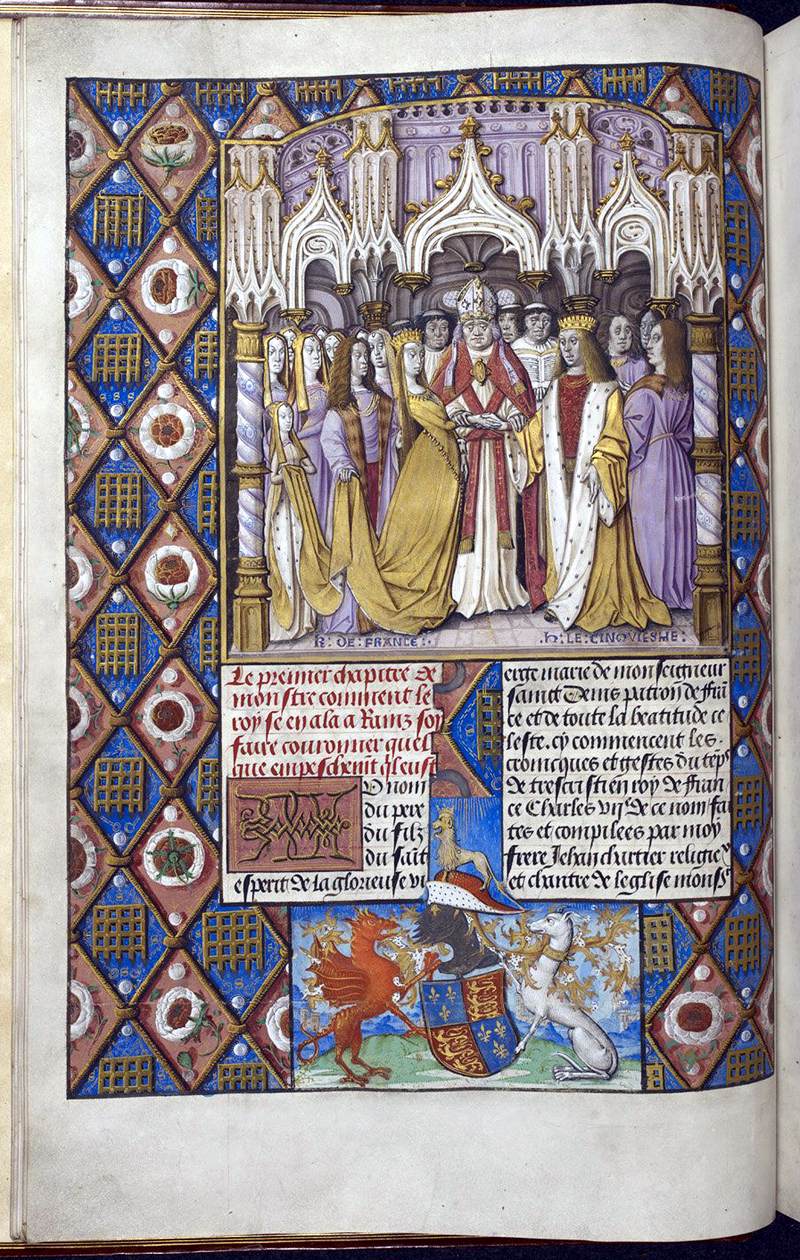 K · DE FRANCE ·
h · LE CINQVIESME :
Le premier chapitre de
monstre comment le
roy se en ala a Rainz soy
faire couronner quel
que empeschemt ql eust
U nom
du pere
du filz
du sait
esperit de la glorieuse vi
erge marie de mon seigneur
sainct Denis patron de ffra
ce et de toute la beatitude ce
leste. cy commencent les
cronicques et gestes du teps
de trescristien roy de fran
ce Charles vije de ce nom fai
tes et compilees par moy
frere Jehan chartier religie
et chantre de leglise monsr